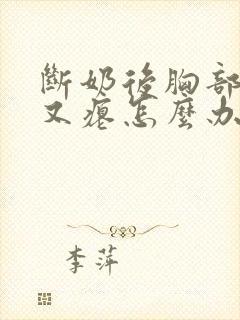 斷奶後胸部
又瘪怎麼办
李萍